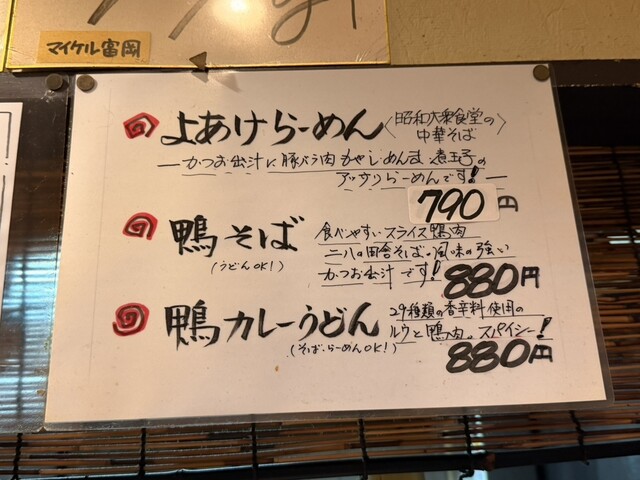 マイケル富岡
よあけらーめん〈昭和大衆食堂の
中華そば
―かつお出汁に豚バラ肉 もやし めんま 煮玉子の
アッサリらーめんです!!―
790円
鴨そば
(うどんOK!)
食べやすいスライス鴨肉
二八の田舎そば。風味の強い
かつお出汁です!!
880円
鴨カレーうどん
(そば・らーめんOK!)
29種類の香辛料使用の
ルウと鴨肉。スパイシー!
880円